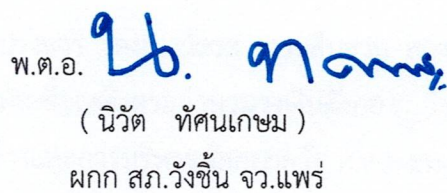 พ.ต.อ.
( นิวัต ทัศนเกษม )
ผกก สภ.วังชิ้น จว.แพร่